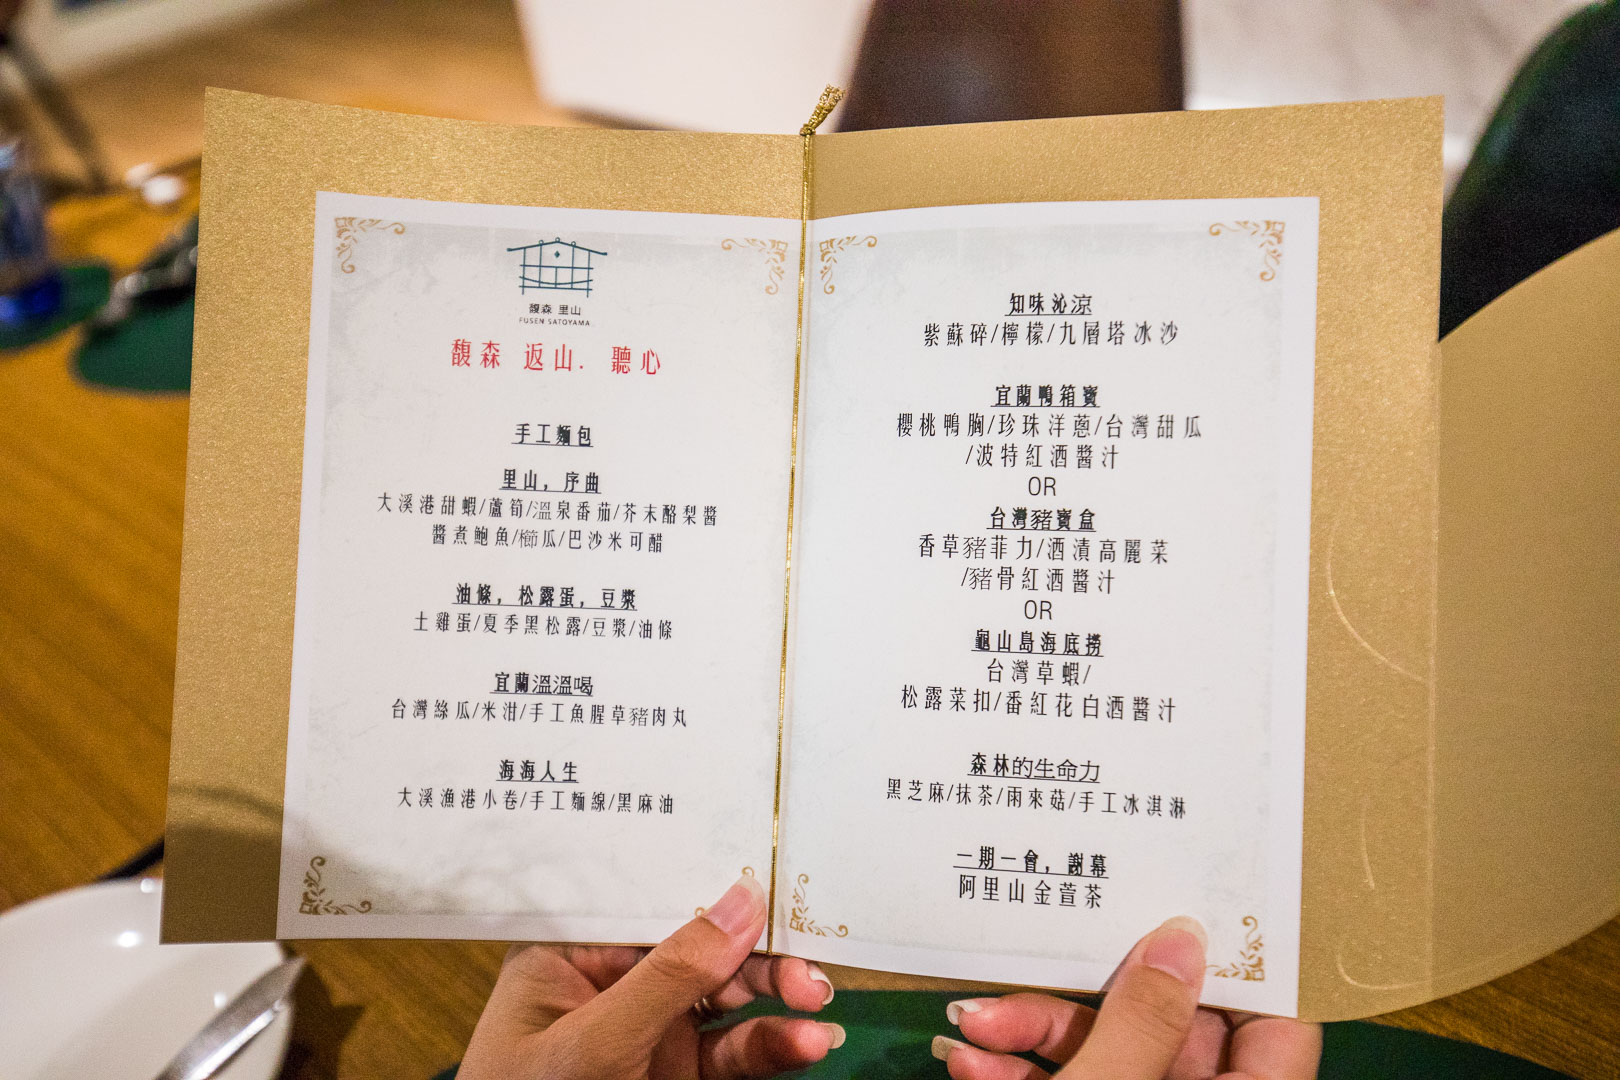 馥森 里山
FUSEN SATOYAMA
馥森 返山. 聽心
手工麵包
里山，序曲
大溪港甜蝦/蘆筍/溫泉番茄/芥末酪梨醬
醬煮鮑魚/櫛瓜/巴沙米可醋
油條，松露蛋，豆漿
土雞蛋/夏季黑松露/豆漿/油條
宜蘭溫溫喝
台灣絲瓜/米泔/手工魚腥草豬肉丸
海海人生
大溪漁港小卷/手工麵線/黑麻油
知味沁涼
紫蘇碎/檸檬/九層塔冰沙
宜蘭鴨箱寶
櫻桃鴨胸/珍珠洋蔥/台灣甜瓜
/波特紅酒醬汁
OR
台灣豬寶盒
香草豬菲力/酒漬高麗菜
/豬骨紅酒醬汁
OR
龜山島海底撈
台灣草蝦/
松露菜扣/番紅花白酒醬汁
森林的生命力
黑芝麻/抹茶/雨來菇/手工冰淇淋
一期一會，謝幕
阿里山金萱茶